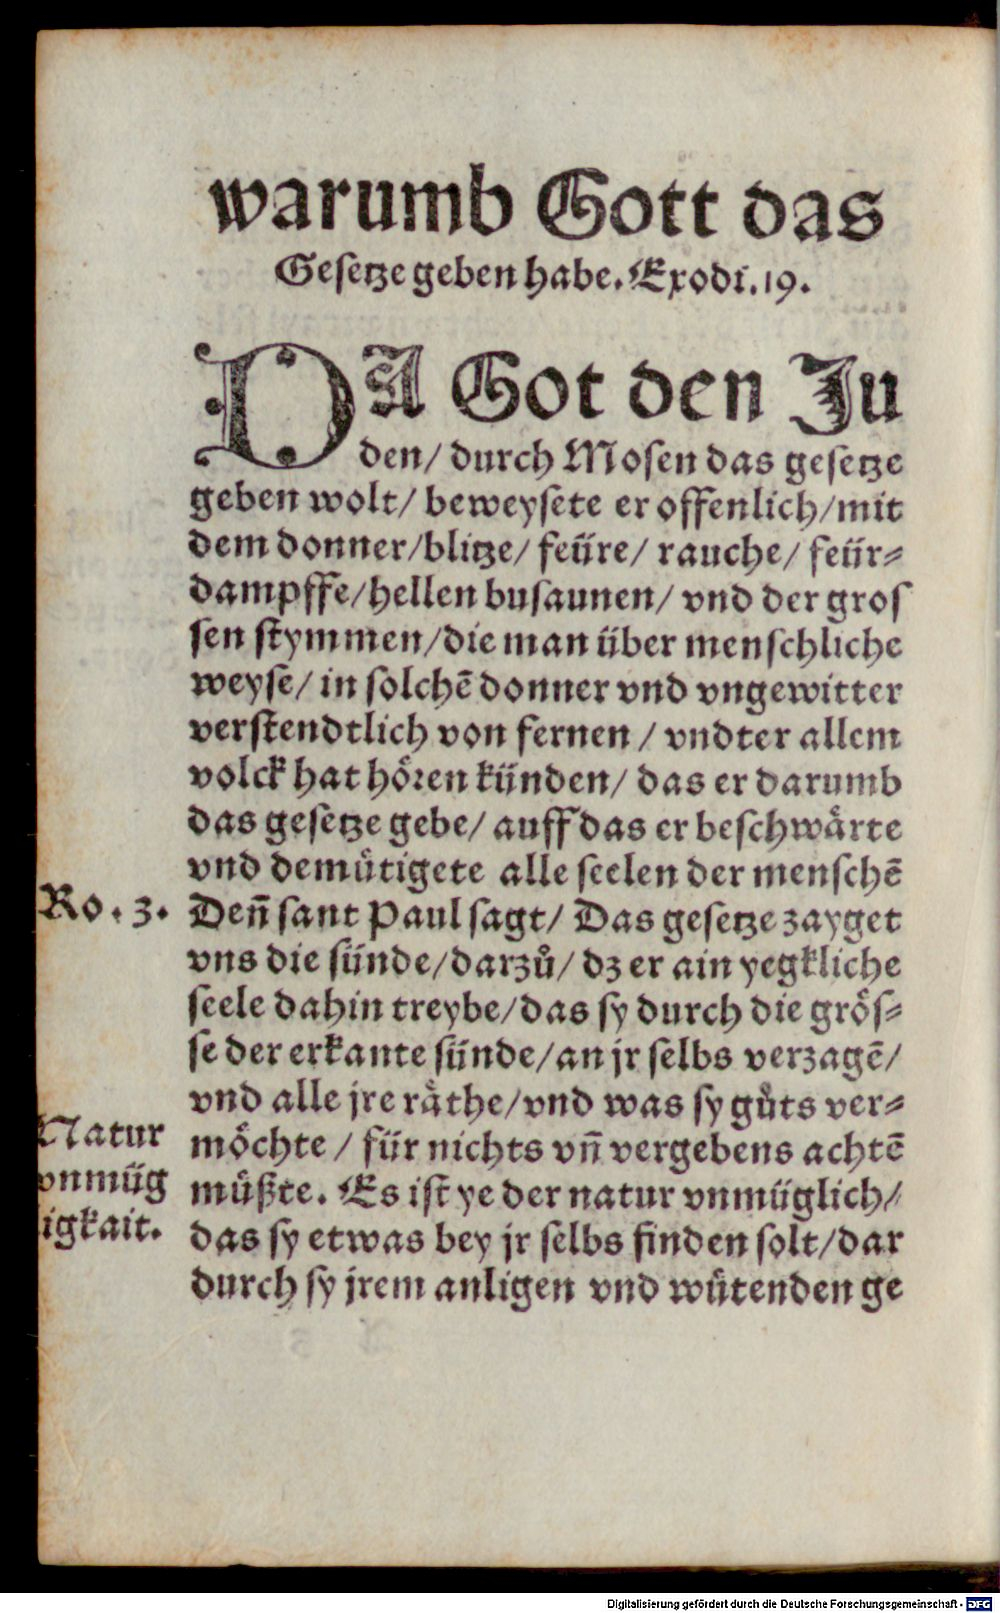 warumb Gott das
Gesetze geben habe. Exodi. 19.
DA Got den Ju
den/ durch Mosen das gesetze
geben wolt/ beweysete er offenlich/mit
dem donner/blitze/ feüre/ rauche/ feür⸗
dampffe/hellen busaunen/ vnd der gros
sen stymmen/die man über menschliche
weyse/ in solchē donner vnd vngewitter
verstendtlich von fernen / vndter allem
volck hat hören künden/ das er darumb
das gesetze gebe/ auff das er beschwärte
vnd demütigete alle seelen der menschē
Ro. 3. Deñ sant Paul sagt/ Das gesetze zayget
vns die sünde/darzů/ dz er ain yegkliche
seele dahin treybe/das sy durch die grös⸗
se der erkante sünde/an jr selbs verzagē/
vnd alle jre räthe/vnd was sy gůts ver⸗
Natur möchte / für nichts vñ vergebens achtē
vnmüg müßte. Es ist ye der natur vnmüglich/
igkait. das sy etwas bey jr selbs finden solt/dar
durch sy jrem anligen vnd wütenden ge
Digitalisierung gefördert durch die Deutsche Forschungsgemeinschaft - DFG